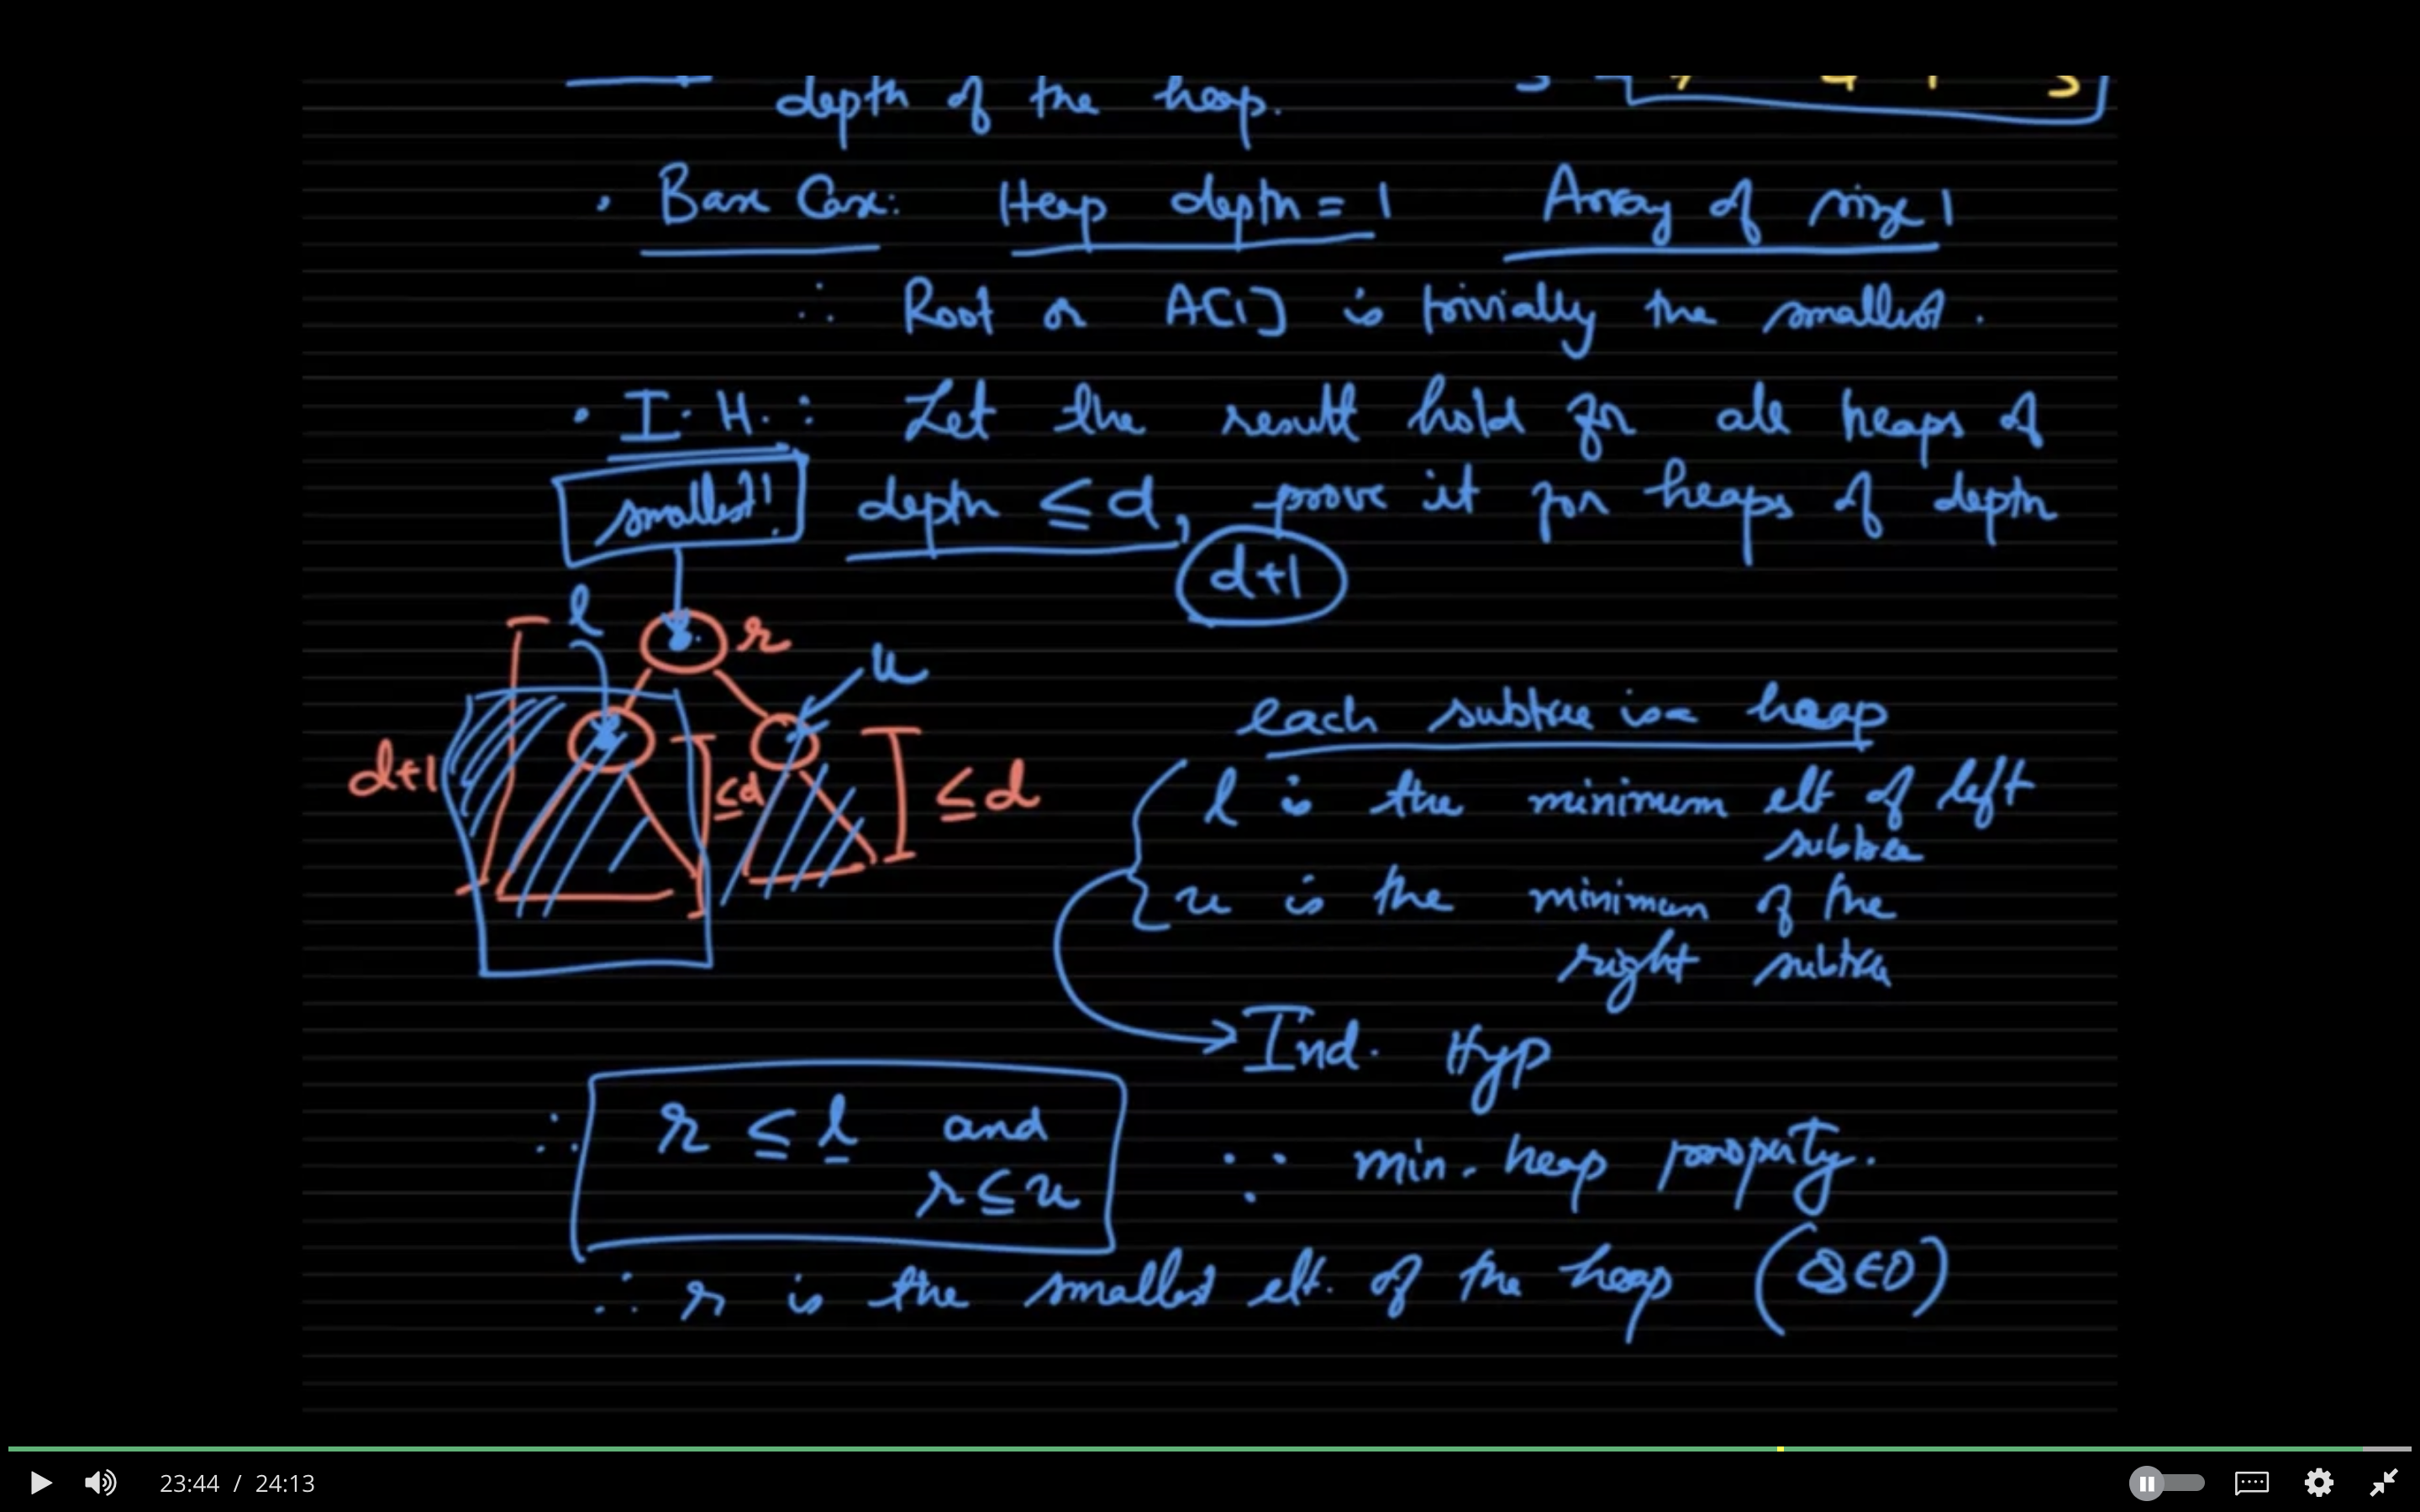 depth of the heap.
• Base Case: Heap depth = 1 Array of size 1
∴ Root or A[1] is trivially the smallest.
• I.H.: Let the result hold for all heaps of
smallest! depth ≤ d, prove it for heaps of depth
d+1
l r u
each subtree is a heap
d+1 ≤d ≤ d
l is the minimum elt of left
subtree
u is the minimum of the
right subtree
Ind. Hyp
∴ r ≤ l and
r ≤ u ∵ min. heap property.
∴ r is the smallest elt. of the heap (QED)
23:44 / 24:13